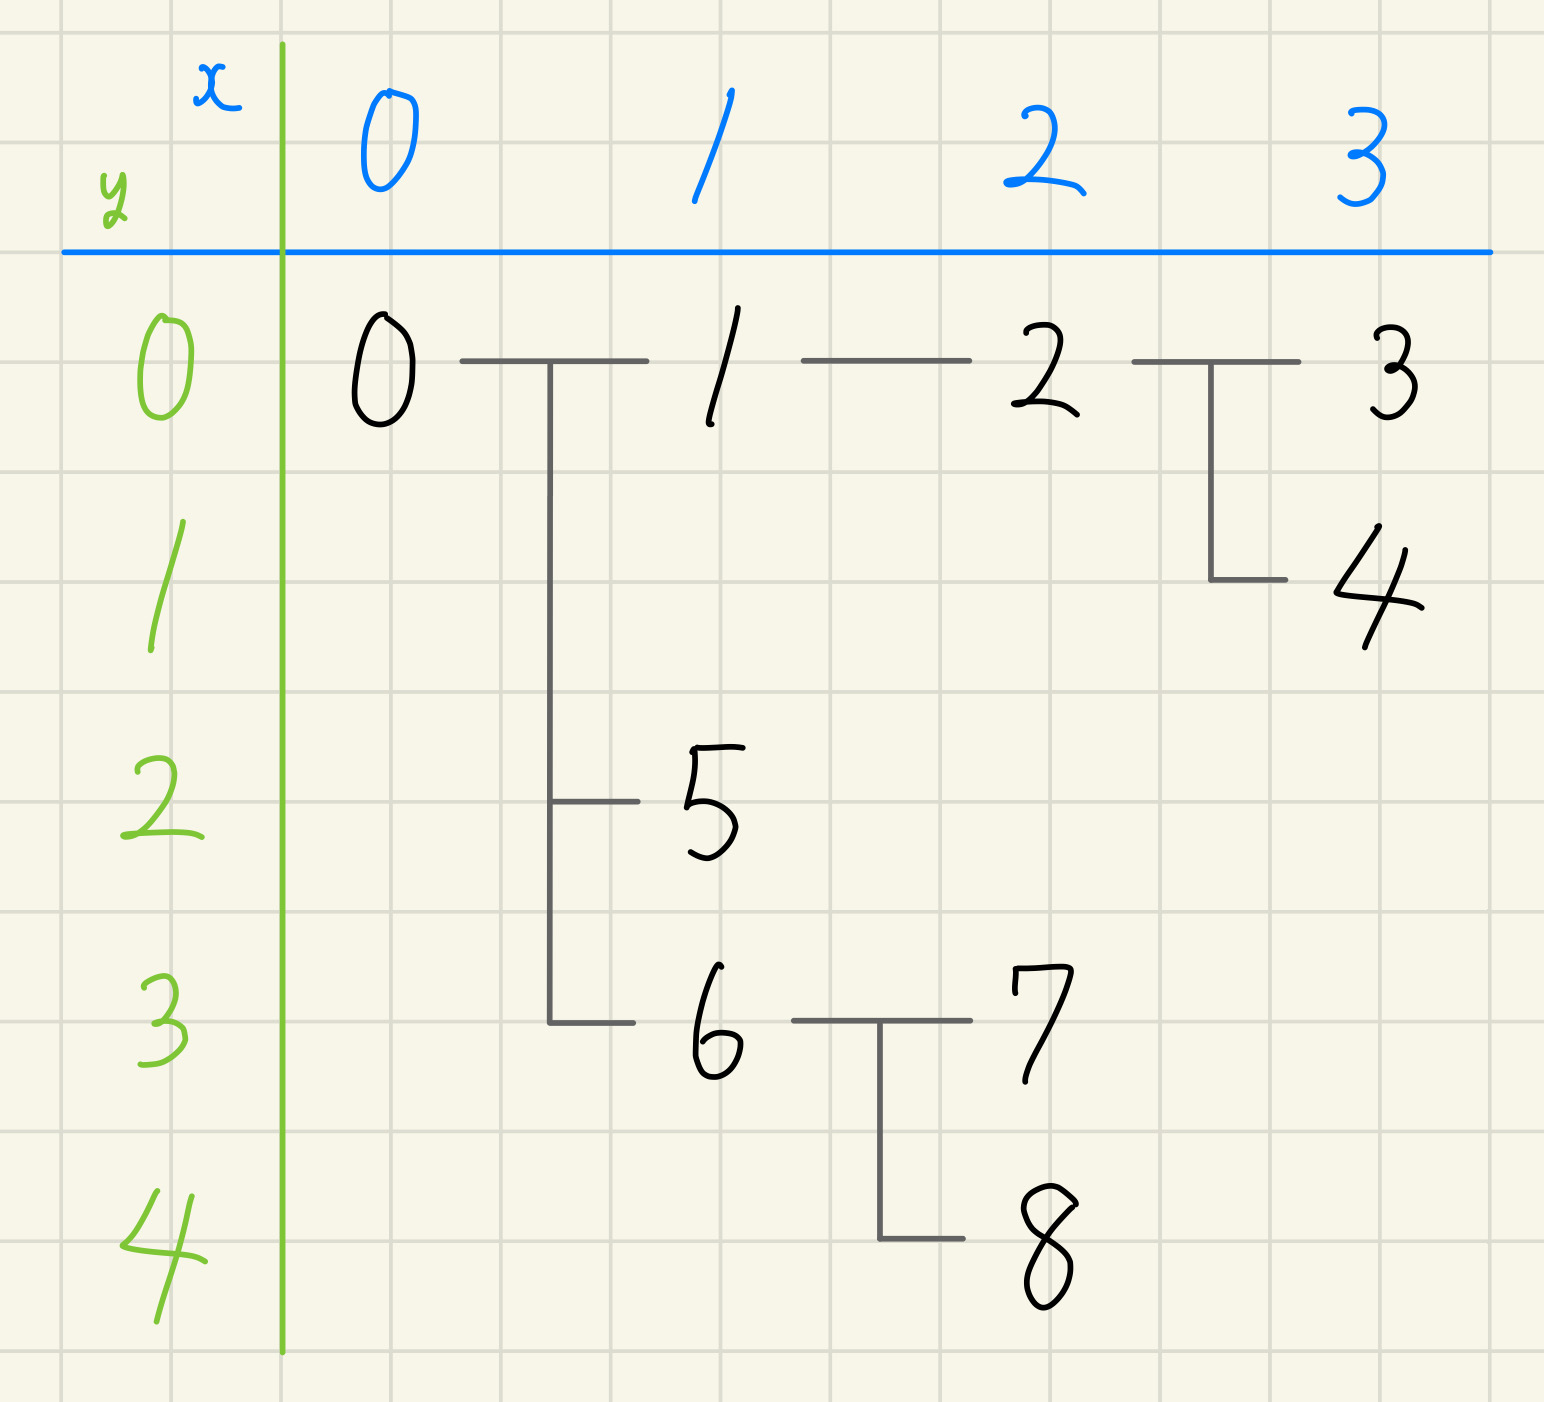 x 0 1 2 3
y
0 0 1 2 3
1 4
2 5
3 6 7
4 8